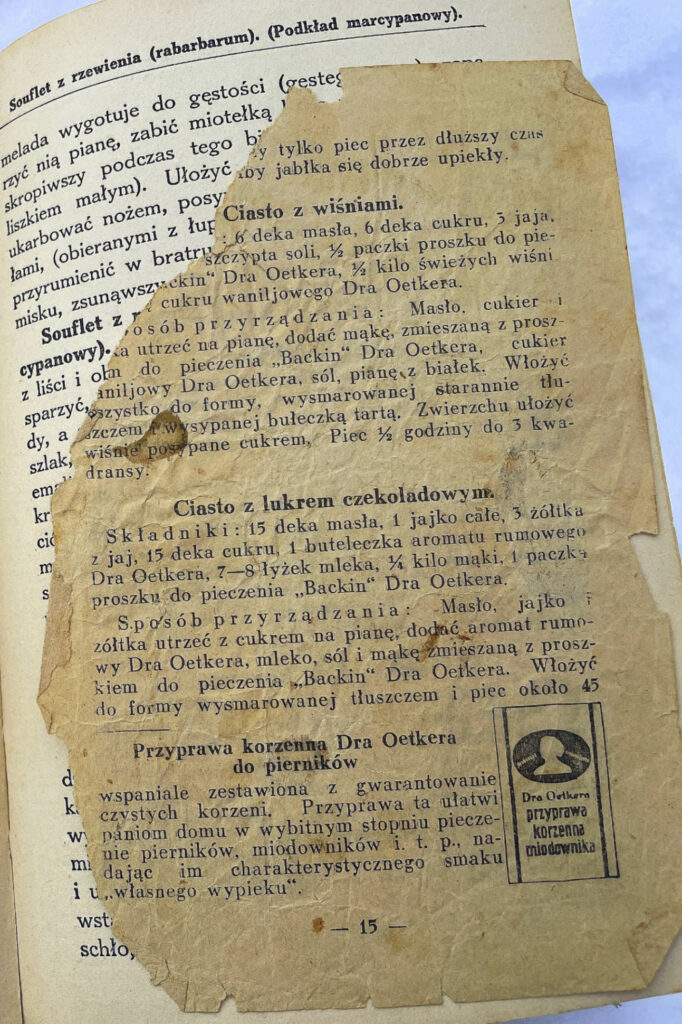 Souflet z rzewienia (rabarbarum). (Podkład marcypanowy).
melada wygotuje do gęstości
rzyć nią pianę, zabić miotełką
skropiwszy podczas tego
liszkiem małym). Ułożyć
ukarbować nożem,
łami, (obieranymi z
przyrumienić w
misku,
Souflet z
cypanowy).
z liści i
sparzyć,
dy, a
szlak,
tylko piec przez dłuższy czas
aby jabłka się dobrze upiekły.
Ciasto z wiśniami.
: 6 deka masła, 6 deka cukru, 3 jaja,
szczypta soli, ½ paczki proszku do pie-
„Backin“ Dra Oetkera, ½ kilo świeżych wiśni
cukru waniljowego Dra Oetkera.
osób przyrządzania: Masło, cukier i
utrzeć na pianę, dodać mąkę, zmieszaną z prosz-
do pieczenia „Backin“ Dra Oetkera, cukier
aniljowy Dra Oetkera, sól, pianę z białek. Włożyć
wszystko do formy, wysmarowanej starannie tłu-
szczem i wysypanej bułeczką tartą. Zwierzchu ułożyć
wiśnie posypane cukrem, Piec ½ godziny do 3 kwa-
dransy.
Ciasto z lukrem czekoladowym.
Składniki: 15 deka masła, 1 jajko całe, 3 żółtka
z jaj, 15 deka cukru, 1 buteleczka aromatu rumowego
Dra Oetkera, 7—8 łyżek mleka, ¼ kilo mąki, 1 paczka
proszku do pieczenia „Backin“ Dra Oetkera.
Sposób przyrządzania: Masło, jajko i
żółtka utrzeć z cukrem na pianę, dodać aromat rumo-
wy Dra Oetkera, mleko, sól i mąkę zmieszaną z prosz-
kiem do pieczenia „Backin“ Dra Oetkera. Włożyć
do formy wysmarowanej tłuszczem i piec około 45
Przyprawa korzenna Dra Oetkera
do pierników
wspaniale zestawiona z gwarantowanie
czystych korzeni. Przyprawa ta ułatwi
paniom domu w wybitnym stopniu piecze-
nie pierników, miodowników i. t. p., na-
dając im charakterystycznego smaku
„własnego wypieku“.
Dra Oetkera
przyprawa
korzenna
miodownika
— 15 —
i u
schło,